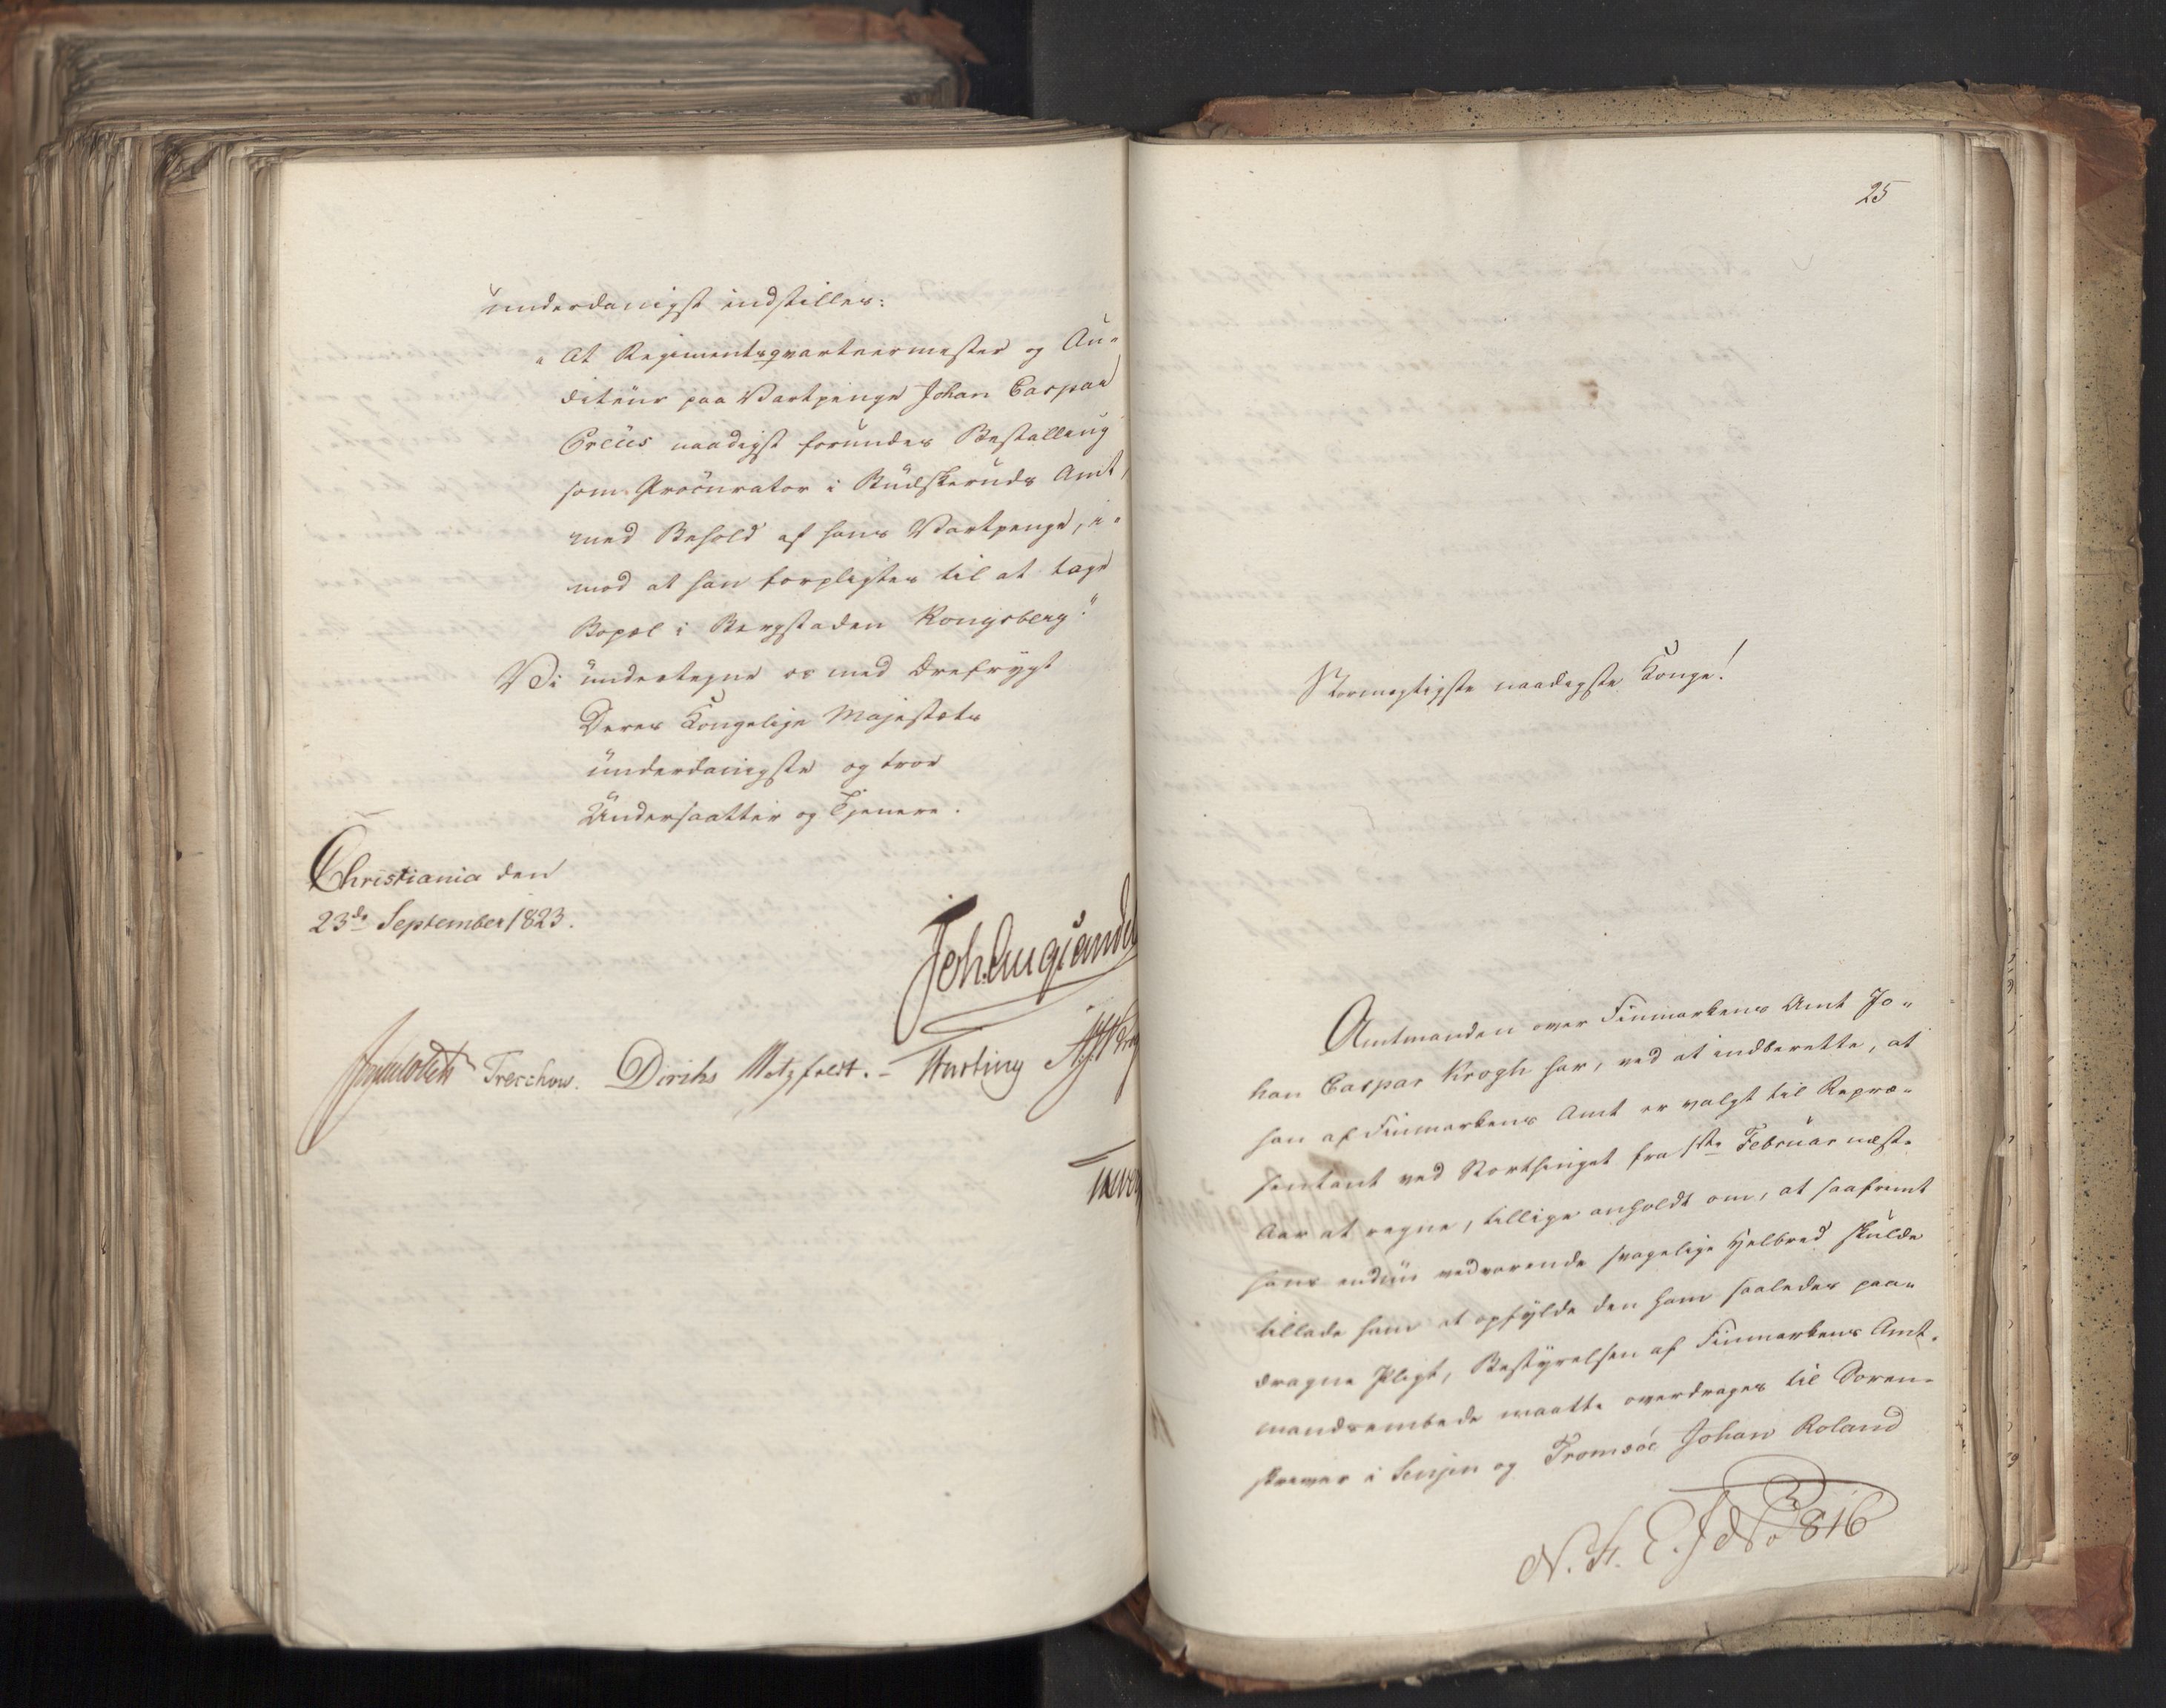 underdanigst indstilles:
"At Regimentsqvarteermester og Au-
diteur paa Vartpenge Johan Caspar
Preus naadigst forundes Bestalling
som Procurator i Budskeruds Amt,
med Behold af hans Vartpenge, i-
mod at han forpligtes til at tage
Bopæl i Bergstaden Kongsberg."
Vi undertegne os med Ærefrygt
Deres Kongelige Majestæts
underdanigste og troe
Undersaatter og Tjenere.
Christiania den
23de September 1823.
Joh. Aug. Sandel
Sommerhielm Treschow. Diriks Motzfeldt. Fasting
25
Stormægtigste naadigste Konge!
Amtmanden over Finmarkens Amt Jo-
han Caspar Krogh har, ved at indberette, at
han af Finmarkens Amt er valgt til Repræ-
sentant ved Storthinget fra 1ste Februar næste
Aar at regne, tillige anholdt om, at saafremt
hans endnu vedvarende svagelige Helbred skulde
tillade ham at opfylde den ham saaledes paa-
dragne Pligt, Bestyrelsen af Finmarkens Amt-
mandsembede maatte overdrages til Soren-
skriver i Senjen og Tromsöe Johan Roland
N. H. E. J No 816